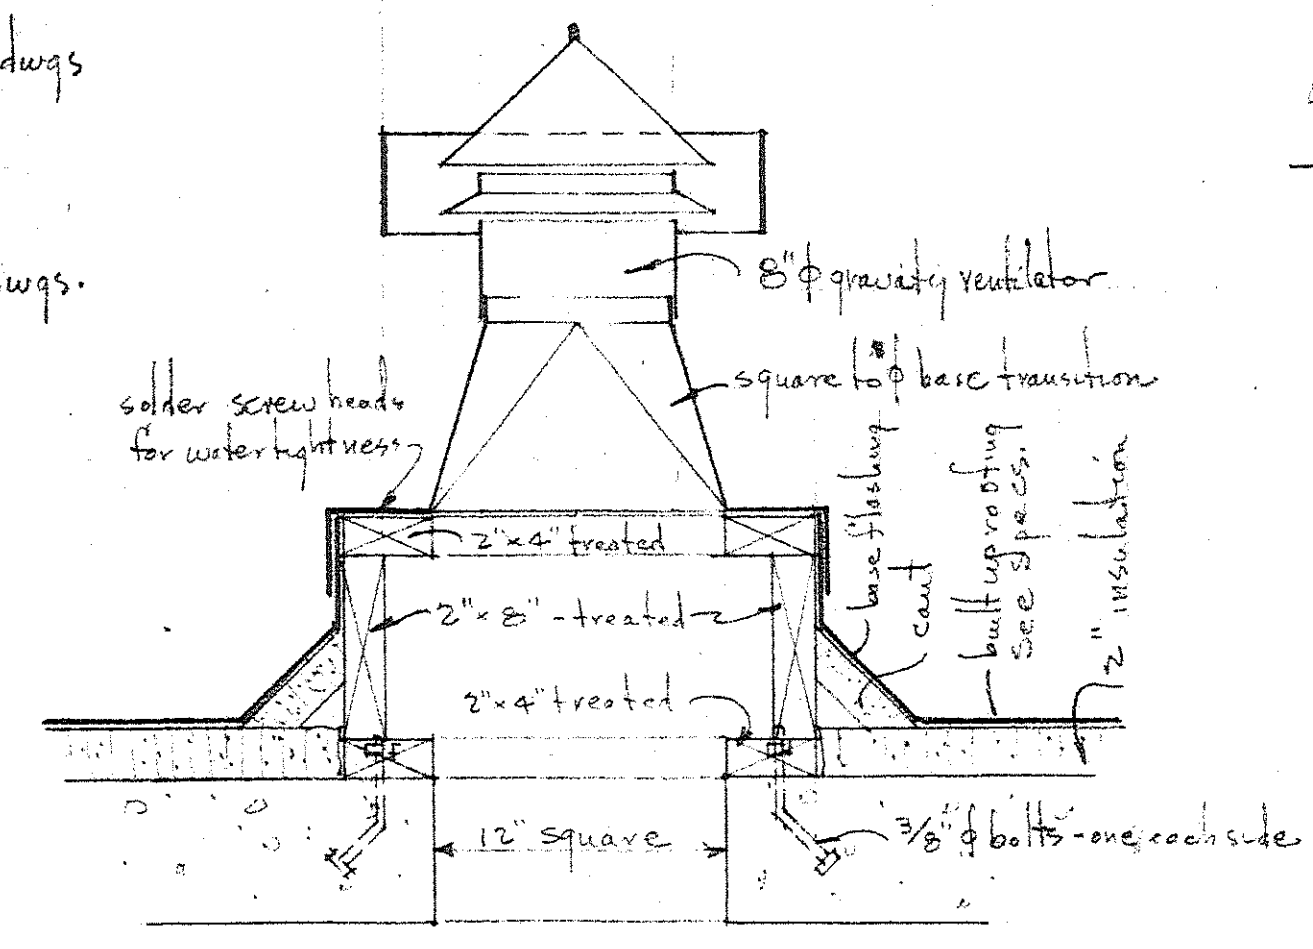 dwgs
dwgs.
8"ϕ gravity ventilator
square to ϕ base transition
solder screw heads
for watertightness
2"x4" treated
2"x8" - treated
2"x4" treated
base flashing
cant
built up roofing
see specs.
2" insulation
12" square
3/8"ϕ bolts - one each side